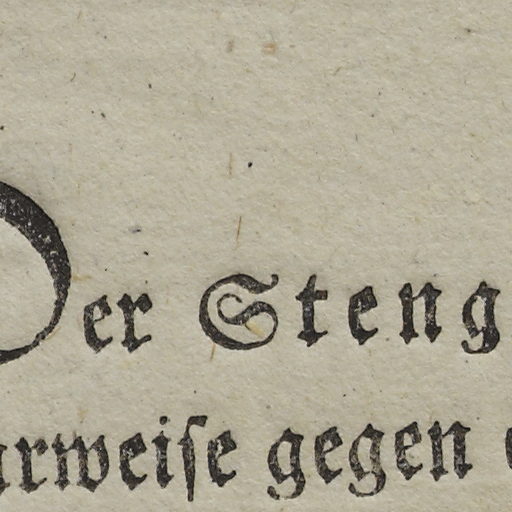 Der Steng
arweiſe gegen